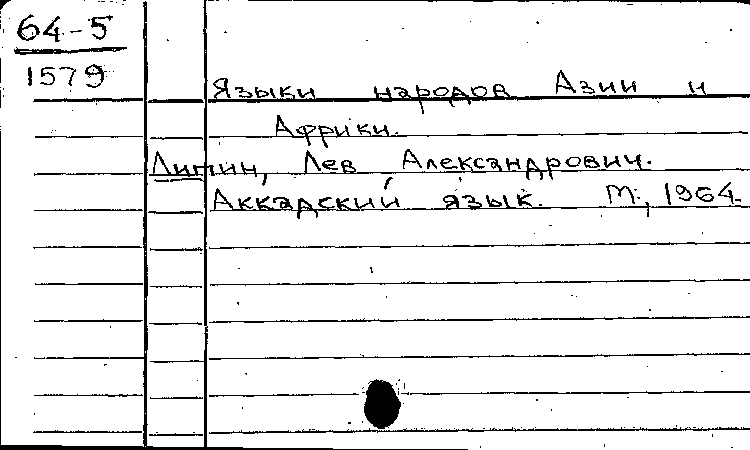 64-5
1579
Языки народов Азии и
Африки.
Липин, Лев Александрович.
Аккадский язык. М., 1964.